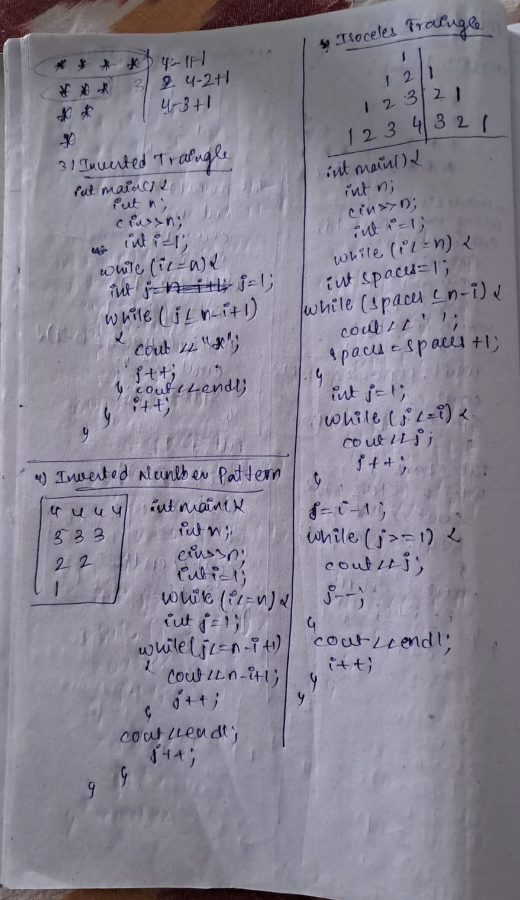 * * * * 4-1+1
* * * 3 2 4-2+1
* * 4-3+1
*
3) Inverted Traingle
int main() {
int n;
cin>>n;
int i=1;
while (i<=n) {
int j=n-i+1; j=1;
while (j≤n-i+1)
{
cout << "*";
j++;
} cout<<endl;
} i++;
}
4) Inverted Number Pattern
4 4 4 4
3 3 3
2 2
1
int main() {
int n;
cin>>n;
int i=1;
while (i<=n) {
int j=1;
while(j<=n-i+1)
{ cout<<n-i+1;
j++;
}
cout<<endl;
j++;
}
}
Isoceles Traingle
1
1 2 1
1 2 3 2 1
1 2 3 4 3 2 1
int main() {
int n;
cin>>n;
int i=1;
while (i<=n) {
int spaces=1;
while (spaces ≤n-i) {
cout << ' ';
spaces=spaces+1;
}
int j=1;
while (j<=i) {
cout<<j;
j++;
}
j=i-1;
while (j>=1) {
cout<<j;
j--;
}
cout<<endl;
i++;
}
}